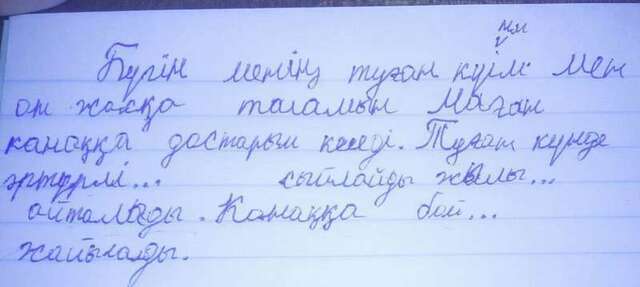 нім
Бүгін менің туған күім Мен
он жасқа толамын Маған
канаққа достарым келеді. Туған күнде
әртүрлі... сыйлайды жылы...
айталады. Канаққа бай...
жайылады.